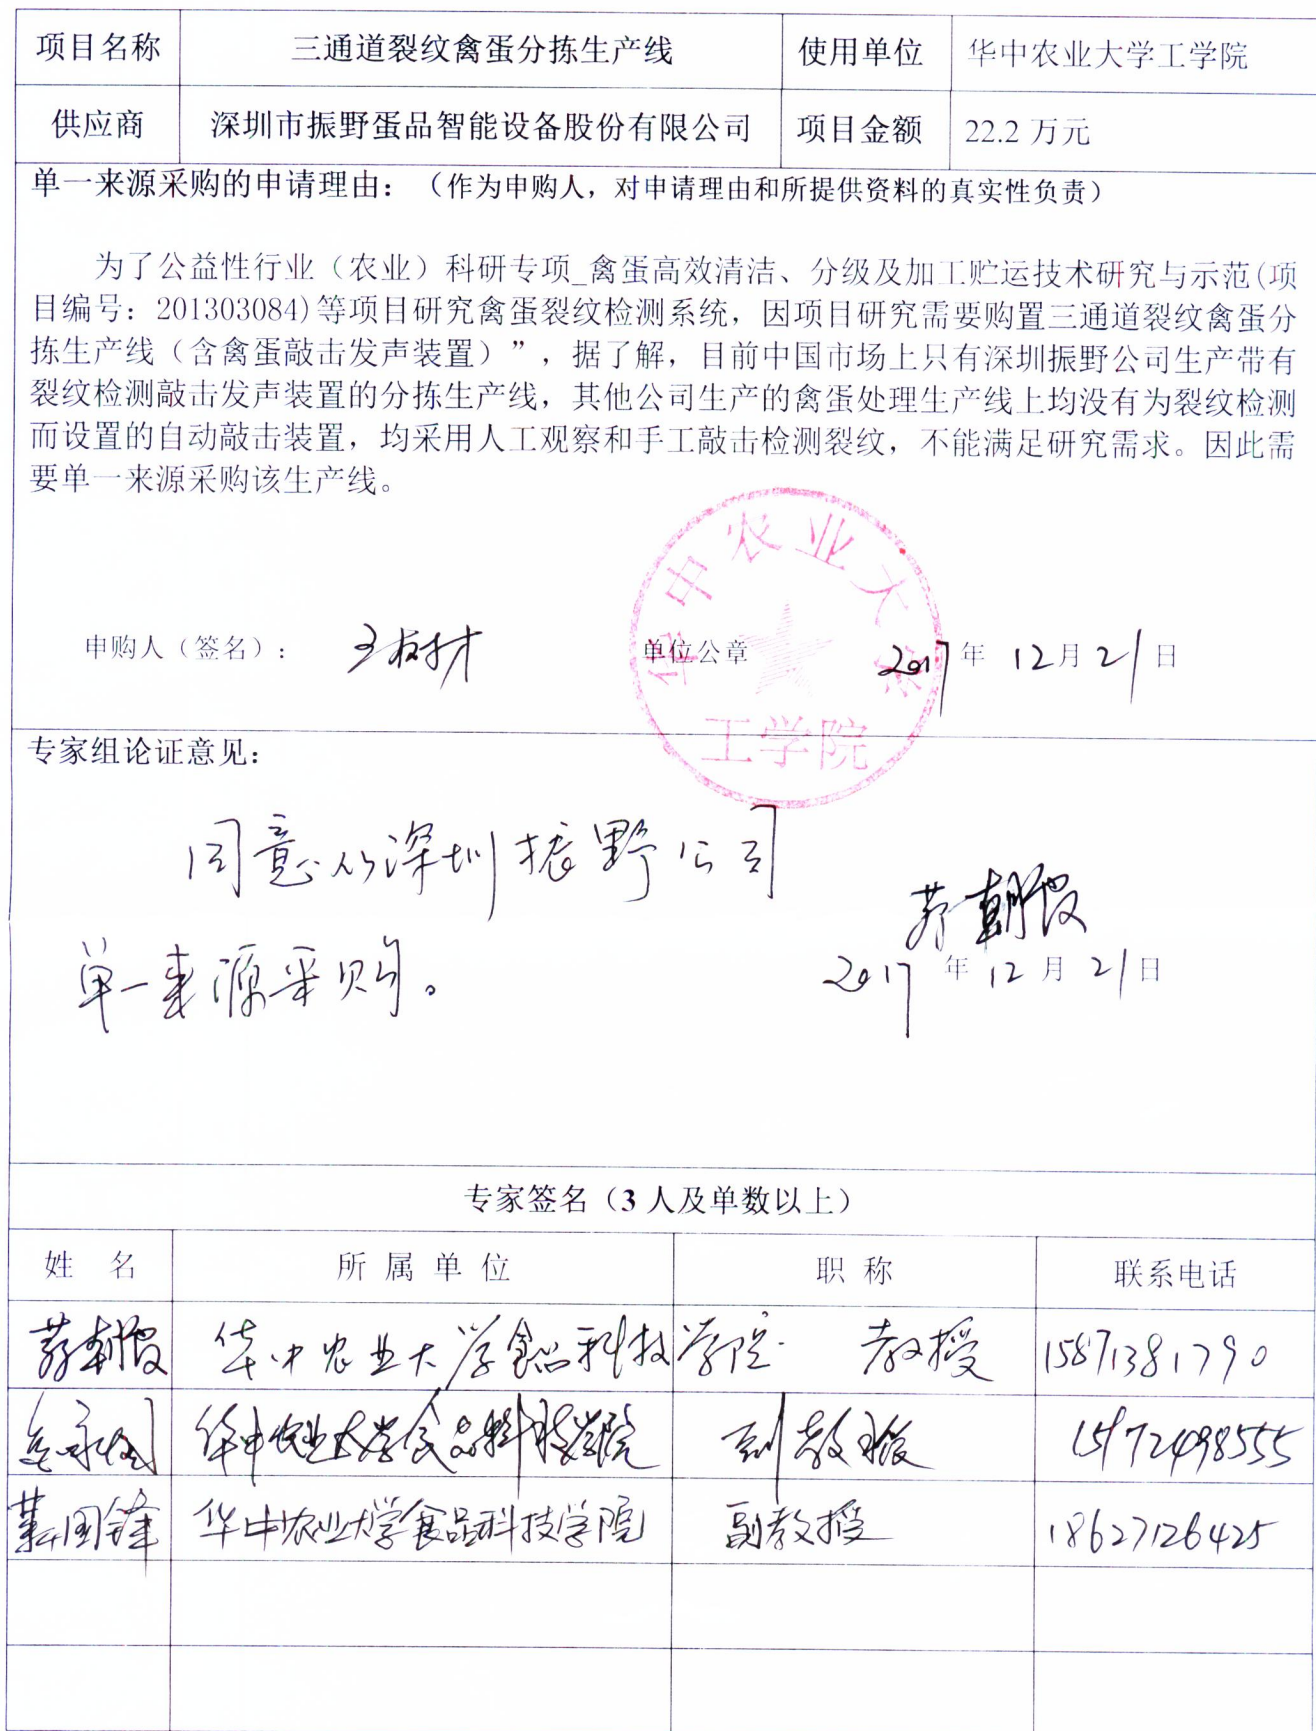 项目名称 三通道裂纹禽蛋分拣生产线 使用单位 华中农业大学工学院
供应商 深圳市振野蛋品智能设备股份有限公司 项目金额 22.2 万元
单一来源采购的申请理由：（作为申购人，对申请理由和所提供资料的真实性负责）
为了公益性行业（农业）科研专项_禽蛋高效清洁、分级及加工贮运技术研究与示范(项
目编号：201303084)等项目研究禽蛋裂纹检测系统，因项目研究需要购置三通道裂纹禽蛋分
拣生产线（含禽蛋敲击发声装置）”，据了解，目前中国市场上只有深圳振野公司生产带有
裂纹检测敲击发声装置的分拣生产线，其他公司生产的禽蛋处理生产线上均没有为裂纹检测
而设置的自动敲击装置，均采用人工观察和手工敲击检测裂纹，不能满足研究需求。因此需
要单一来源采购该生产线。
华中农业大学
申购人（签名）： 王树才 单位公章 2017年 12月21日
工学院
专家组论证意见：
同意从深圳振野公司
单一来源采购。
2017年12月21日
专家签名（3 人及单数以上）
姓 名 所 属 单 位 职 称 联系电话
华中农业大学食品科技学院 教授 15871381790
华中农业大学食品科技学院 副教授 15172498555
华中农业大学食品科技学院 副教授 18627126425